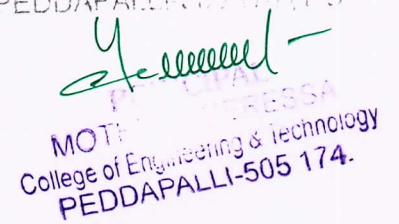 PEDDAPALLI-
PRINCIPAL
MOTHER THERESSA
College of Engineering & Technology
PEDDAPALLI-505 174.